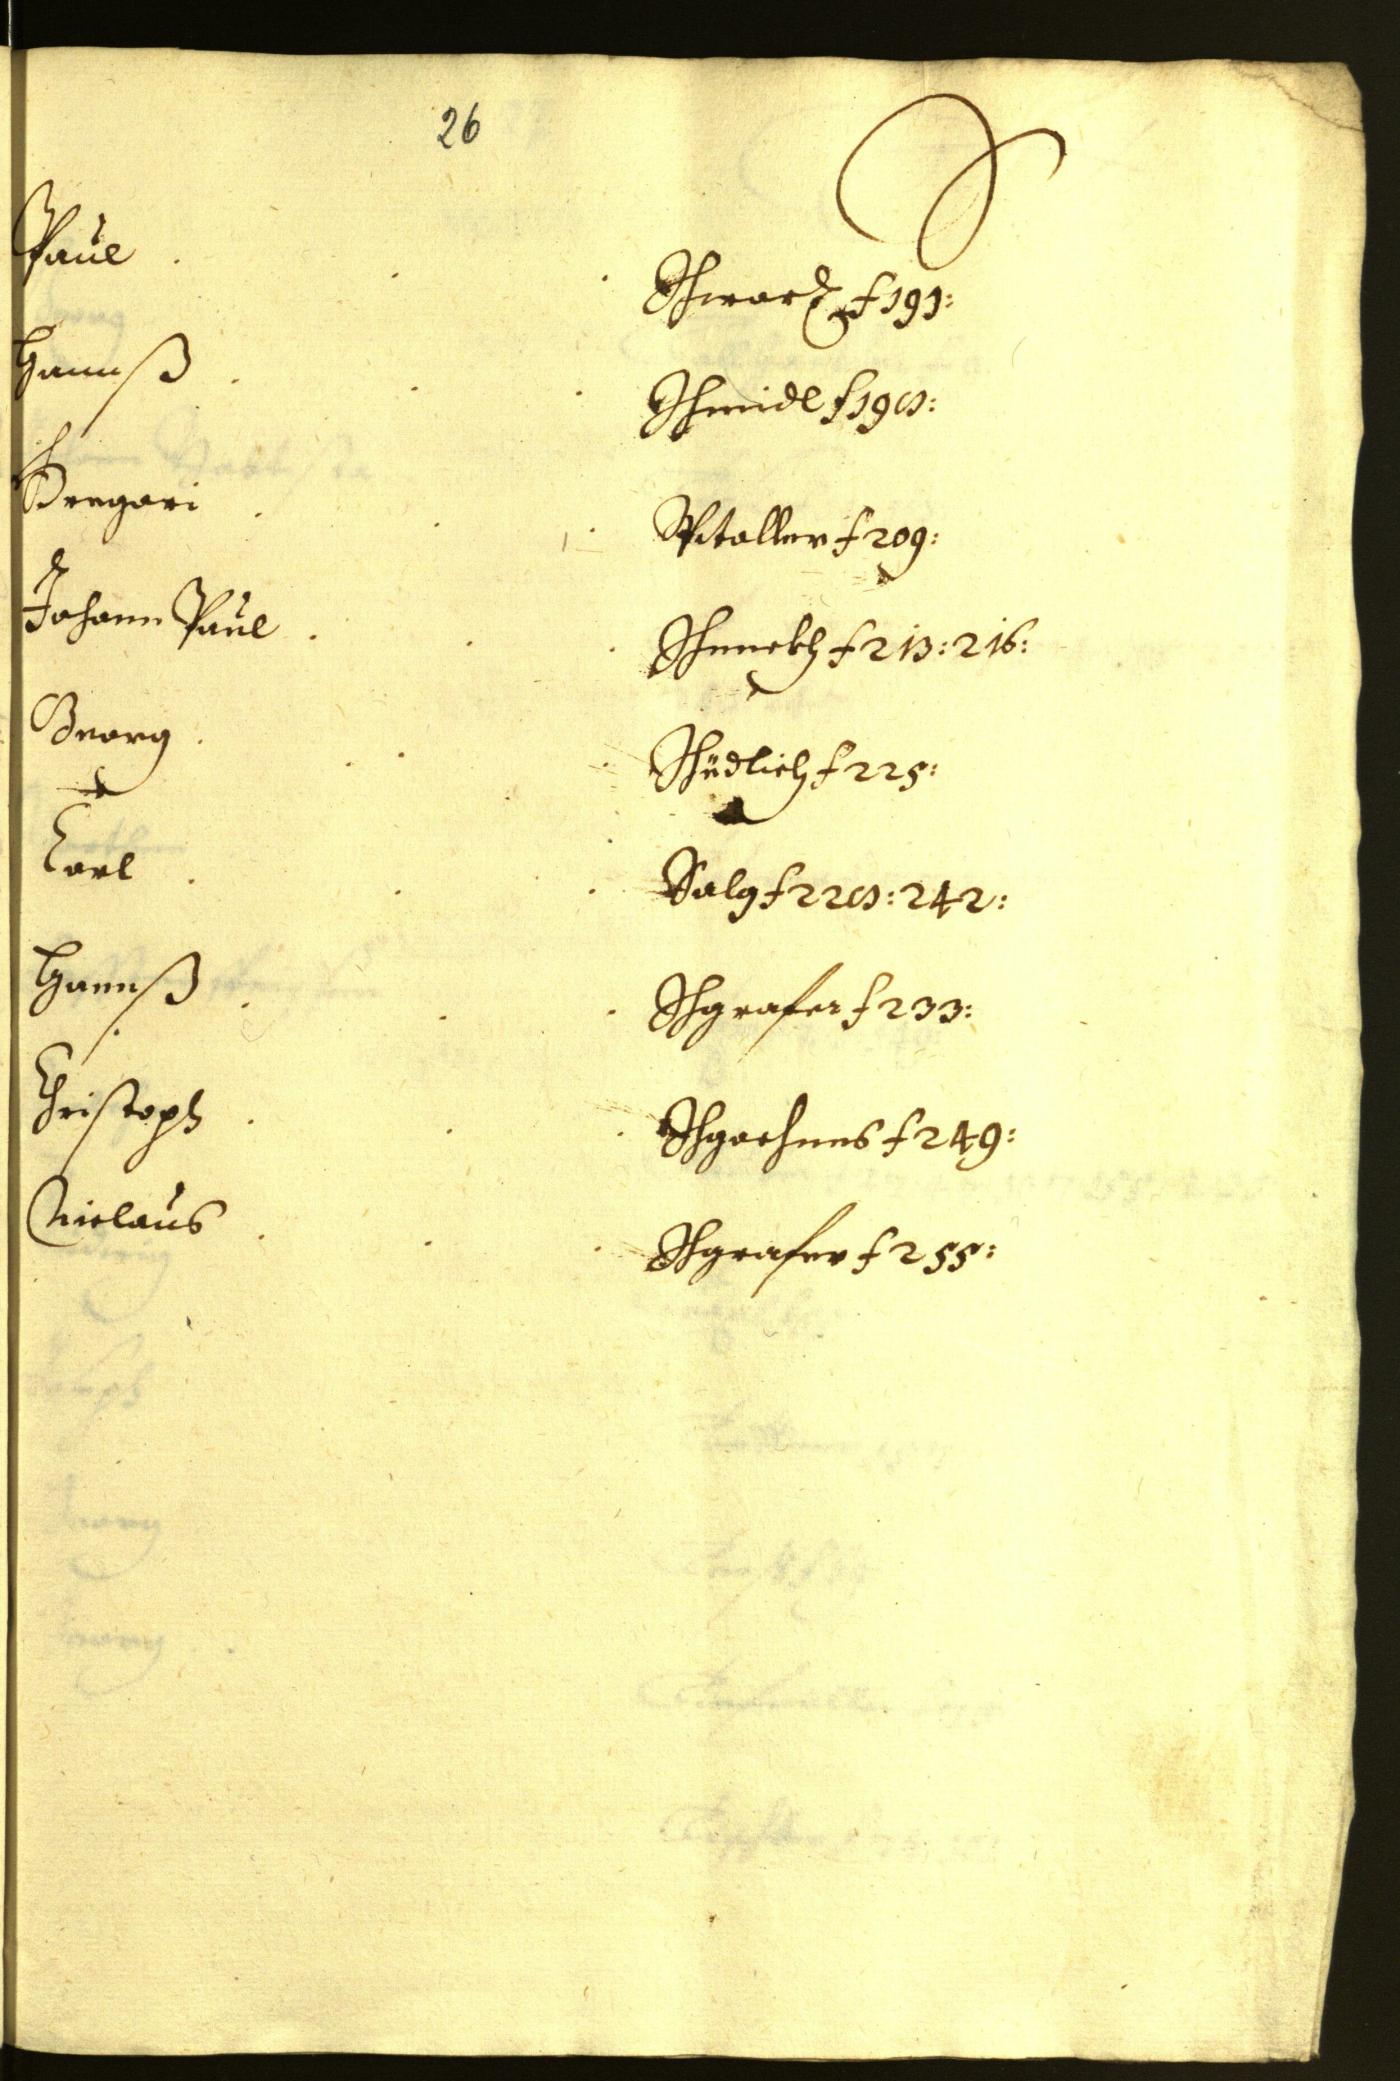 26
Paul . . . Schwarz f 191:
Hannß . . . Schmidl f 198:
Gregori . . . Spitaller f 209:
Johann Paul . . . Schneckh f 213: 216:
Georg . . . Schüdlich f 225:
Carl . . . Salg f 228: 242:
Hannß . . . Schgrafer f 233:
Christoph . . . f 249:
Niclaus . . . Schgrafer f 255: